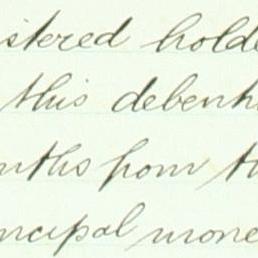 istered holde
this debent
nths from th
incipal mone